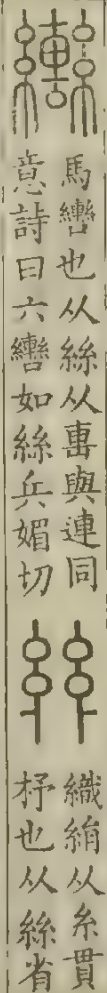 轡
馬轡也从絲从軎與連同
意詩曰六轡如絲兵媚切
𢇇
織絹从糸貫
杼也从絲省